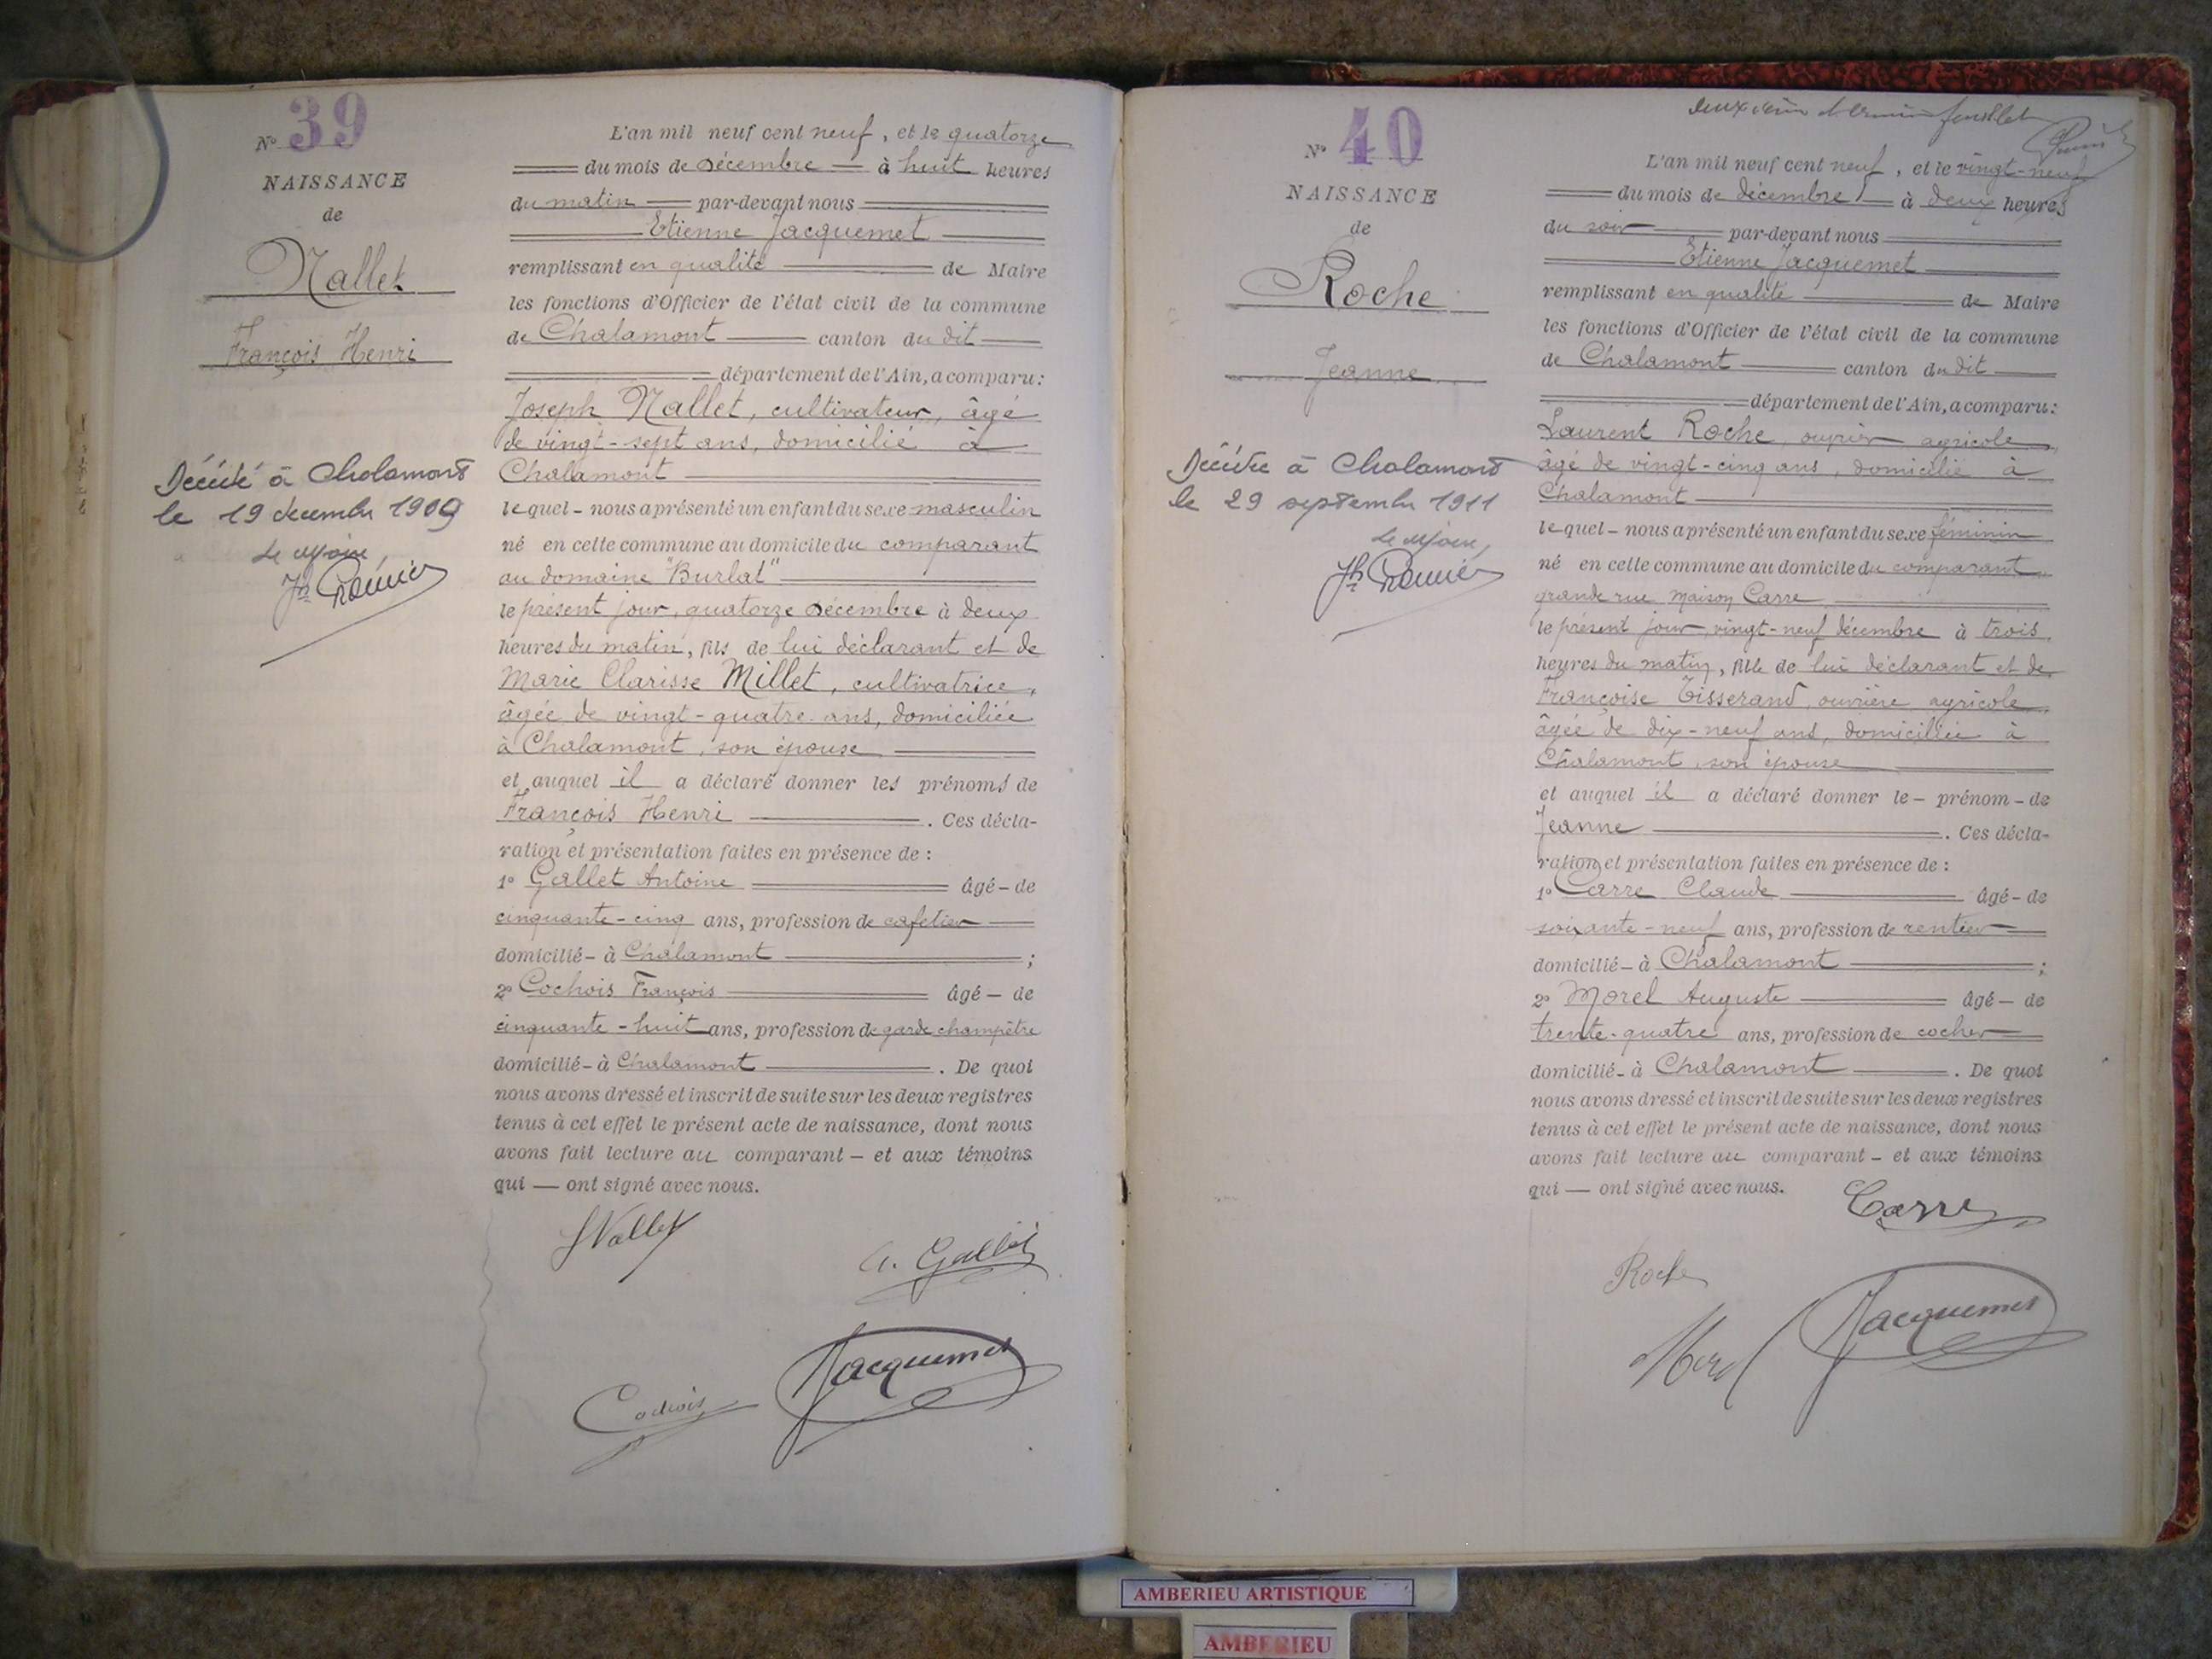 N° 39
NAISSANCE
de
Nallet
François Henri
Décédé à Chalamont
le 19 decembre 1909
Le Maire,
L'an mil neuf cent neuf, et le quatorze
du mois de Décembre à huit heures
du matin par-devant nous
Etienne Jacquemet
remplissant en qualité de Maire
les fonctions d'Officier de l'état civil de la commune
de Chalamont canton du dit
département de l'Ain, a comparu:
Joseph Nallet, cultivateur, âgé
de vingt-sept ans, domicilié à
Chalamont
lequel - nous a présenté un enfant du sexe masculin
né en cette commune au domicile du comparant
au domaine "Burlat"
le présent jour, quatorze Décembre à deux
heures du matin, fils de lui déclarant et de
Marie Clarisse Millet, cultivatrice,
âgée de vingt-quatre ans, domiciliée
à Chalamont, son épouse
et auquel il a déclaré donner les prénoms de
François Henri. Ces décla-
ration et présentation faites en présence de :
1° Gallet Antoine âgé - de
cinquante-cinq ans, profession de cafetier
domicilié - à Chalamont ;
2° Cochois François âgé - de
cinquante-huit ans, profession de garde champêtre
domicilié - à Chalamont. De quoi
nous avons dressé et inscrit de suite sur les deux registres
tenus à cet effet le présent acte de naissance, dont nous
avons fait lecture au comparant - et aux témoins
qui — ont signé avec nous.
JNallet
A. Gallet
Cochois
Jacquemet
N° 40
NAISSANCE
de
Roche
Jeanne
Décédée à Chalamont
le 29 septembre 1911
Le Maire,
feuillet
L'an mil neuf cent neuf, et le vingt-neuf
du mois de décembre à deux heures
du soir par-devant nous
Etienne Jacquemet
remplissant en qualité de Maire
les fonctions d'Officier de l'état civil de la commune
de Chalamont canton du dit
département de l'Ain, a comparu:
Laurent Roche, ouvrier agricole
âgé de vingt-cinq ans, domicilié à
Chalamont
lequel - nous a présenté un enfant du sexe féminin
né en cette commune au domicile du comparant
grande rue Maison Carre
le présent jour vingt-neuf décembre à trois
heures du matin, fille de lui déclarant et de
Françoise Tisserand, ouvrière agricole
âgée de dix-neuf ans, domiciliée à
Chalamont, son épouse
et auquel il a déclaré donner le - prénom - de
Jeanne. Ces décla-
ration et présentation faites en présence de :
1° Carre Claude âgé - de
soixante-neuf ans, profession de rentier
domicilié - à Chalamont ;
2° Morel Auguste âgé - de
trente-quatre ans, profession de cocher
domicilié - à Chalamont. De quoi
nous avons dressé et inscrit de suite sur les deux registres
tenus à cet effet le présent acte de naissance, dont nous
avons fait lecture au comparant - et aux témoins
qui — ont signé avec nous.
Carre
Roche
Morel
Jacquemet
AMBERIEU ARTISTIQUE
AMBERIEU